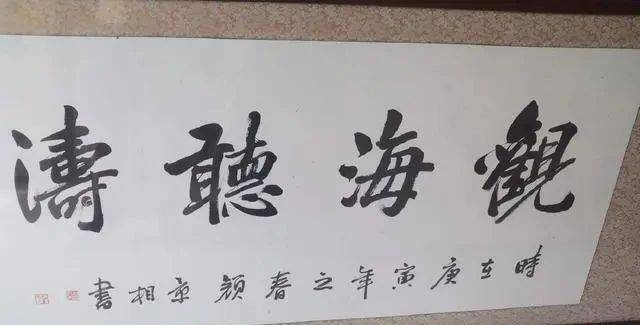 觀海聽濤
時在庚寅年之春顏京相書